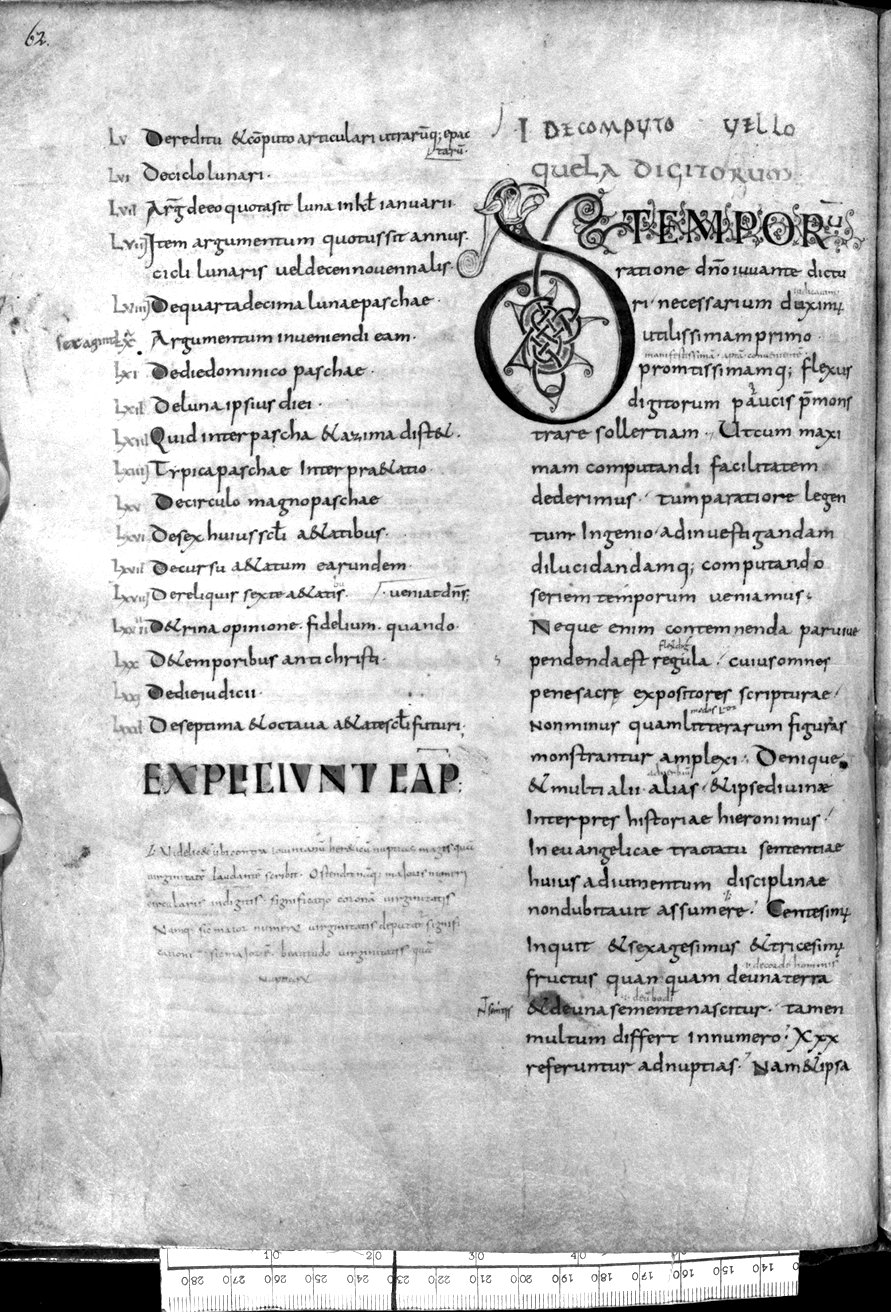 62.
LV De reditu & cōputo articulari utrarūq; epac
tarū.
LVI De ciclo lunari.
LVII Arḡ de eo quota sit luna in kł ianuarii
LVIII Item argumentum quotus sit annus.
cicli lunaris vel decennouennalis.
LVIIII De quartadecima luna paschae.
LX Argumentum inveniendi eam.
LXI De die dominico paschae.
LXII De luna ipsius diei.
LXIII Quid inter pascha & azima dist&.
LXIIII Typica paschae Interpr&atio.
LXV De circulo magno paschae
LXVI De sex huius scłi a&atibus.
LXVII De cursu a&atum earundem.
LXVIII De reliquis sexte a&atis
ueniat dn̄s;
D&rina opinione fidelium. quando.
LXX De temporibus antichristi.
LXXI De die iudicii.
LXXII De septima & octaua a&ate scłi futuri;
EXPLICIUNT CAP:
I DE COMPUTO VEL LO
QUELA DIGITORUM
DE TEMPORŪ
ratione dn̄o iuuante dictu
ri necessarium duximus
utilissimam primo
promtissimamq; flexus
digitorum paucis p̄mons
trare sollertiam. Ut cum maxi
mam computandi facilitatem
dederimus. tum paratiore legen
tium Ingenio ad inuestigandam
dilucidandamq; computando
seriem temporum veniamus;
Neque enim contemnenda paruiue
pendenda est regula. cuius omnes
pene sacrę expositores scripturae.
Non minus quam litterarum figuras
monstrantur amplexi. Denique
& multi alii alias. & ipse diuinae
Interpres historiae hieronimus.
In euangelicae tractatu sententiae
huius adiumentum disciplinae
non dubitauit assumere. Centesimus
Inquit & sexagesimus & tricesimus
fructus quanquam de una terra
& de una semente nascitur. tamen
multum differt in numero. XXX
referuntur ad nuptias. Nam & ipsa